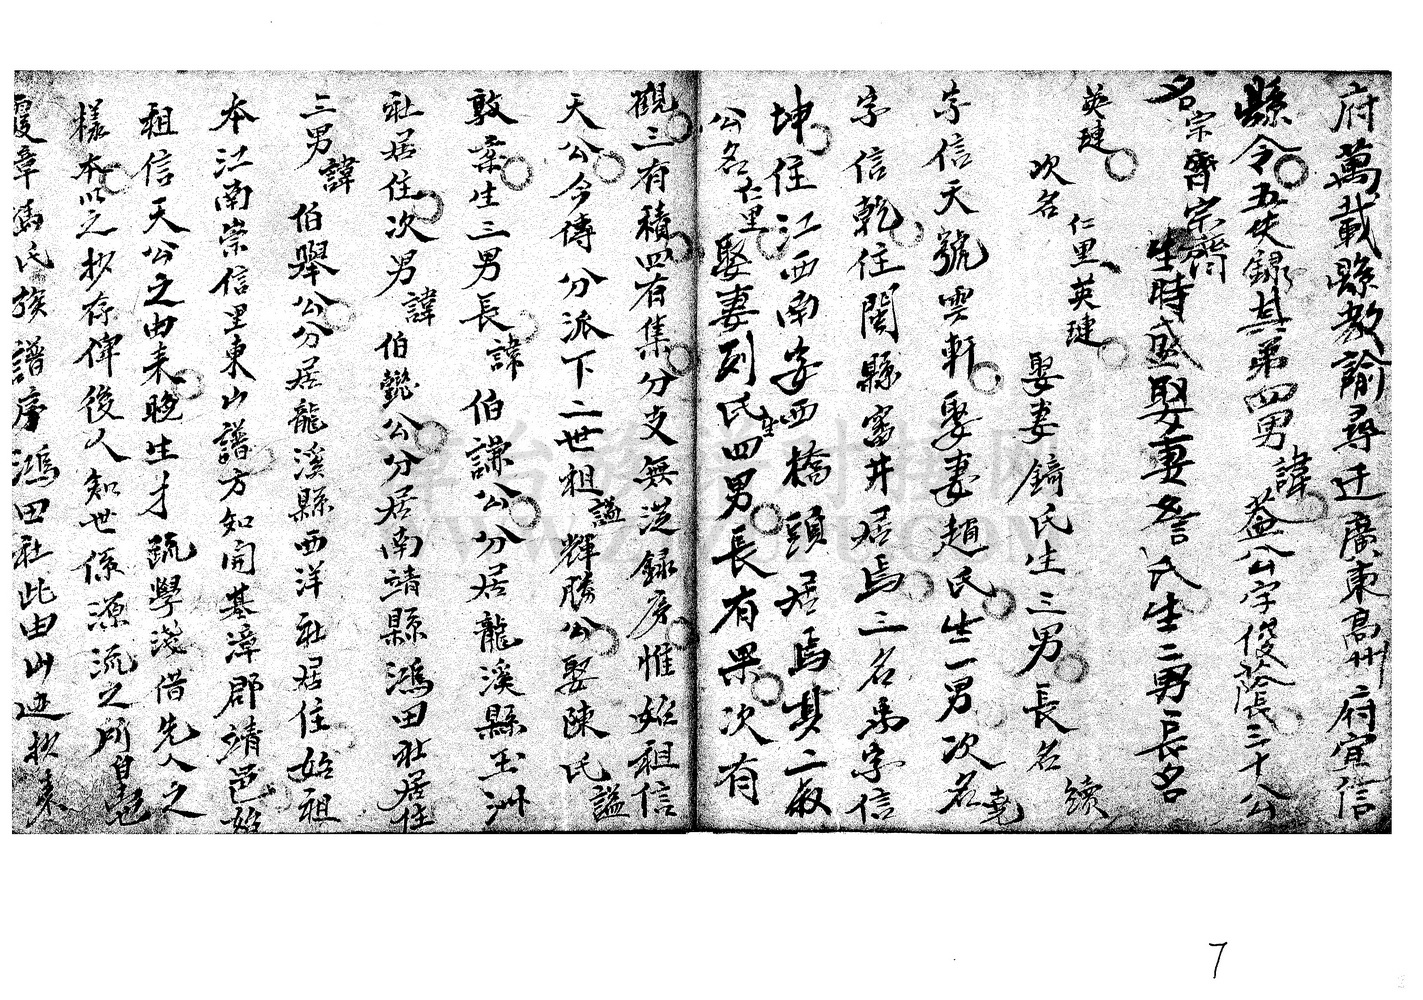 府萬載縣教諭尋迁廣東高州府宜信
縣令五失錄其弟四男諱蓋公字俊蔭三十公
名宗齊宗齊生時盛娶妻詹氏生二男長名
英璉次名仁里英璉娶妻錡氏生三男長名續
字信天號雲軒娶妻趙氏生一男次名堯
字信乾住閩縣富井居焉三名禹字信
坤住江西南安西橋頭居焉其二叔
公名仁里娶妻列氏生四男長有果次有
觀三有積四有集分支無從錄序惟始祖信
天公今傳分派下二世祖諡輝勝公娶陳氏諡
敦柔生三男長諱伯謙公分居龍溪縣玉洲
社居住次男諱伯懿公分居南靖縣鴻田社居住
三男諱伯舉公分居龍溪縣西洋社居住始祖
本江南崇信里東山譜方知開基漳郡靖邑始
祖信天公之由来晚生才疏學淺借先人之
樣本以之抄存俾後人知世係源流之所自*
霞章馮氏族譜序鴻田社此由山边抄来
7